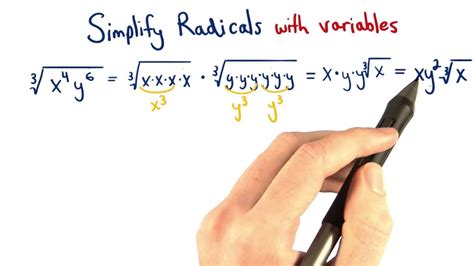 Simplify Radicals with variables
∛x⁴y⁶ = ∛x·x·x·x · ∛y·y·y·y·y·y = x·y·y∛x = xy²·∛x
x³ y³ y³